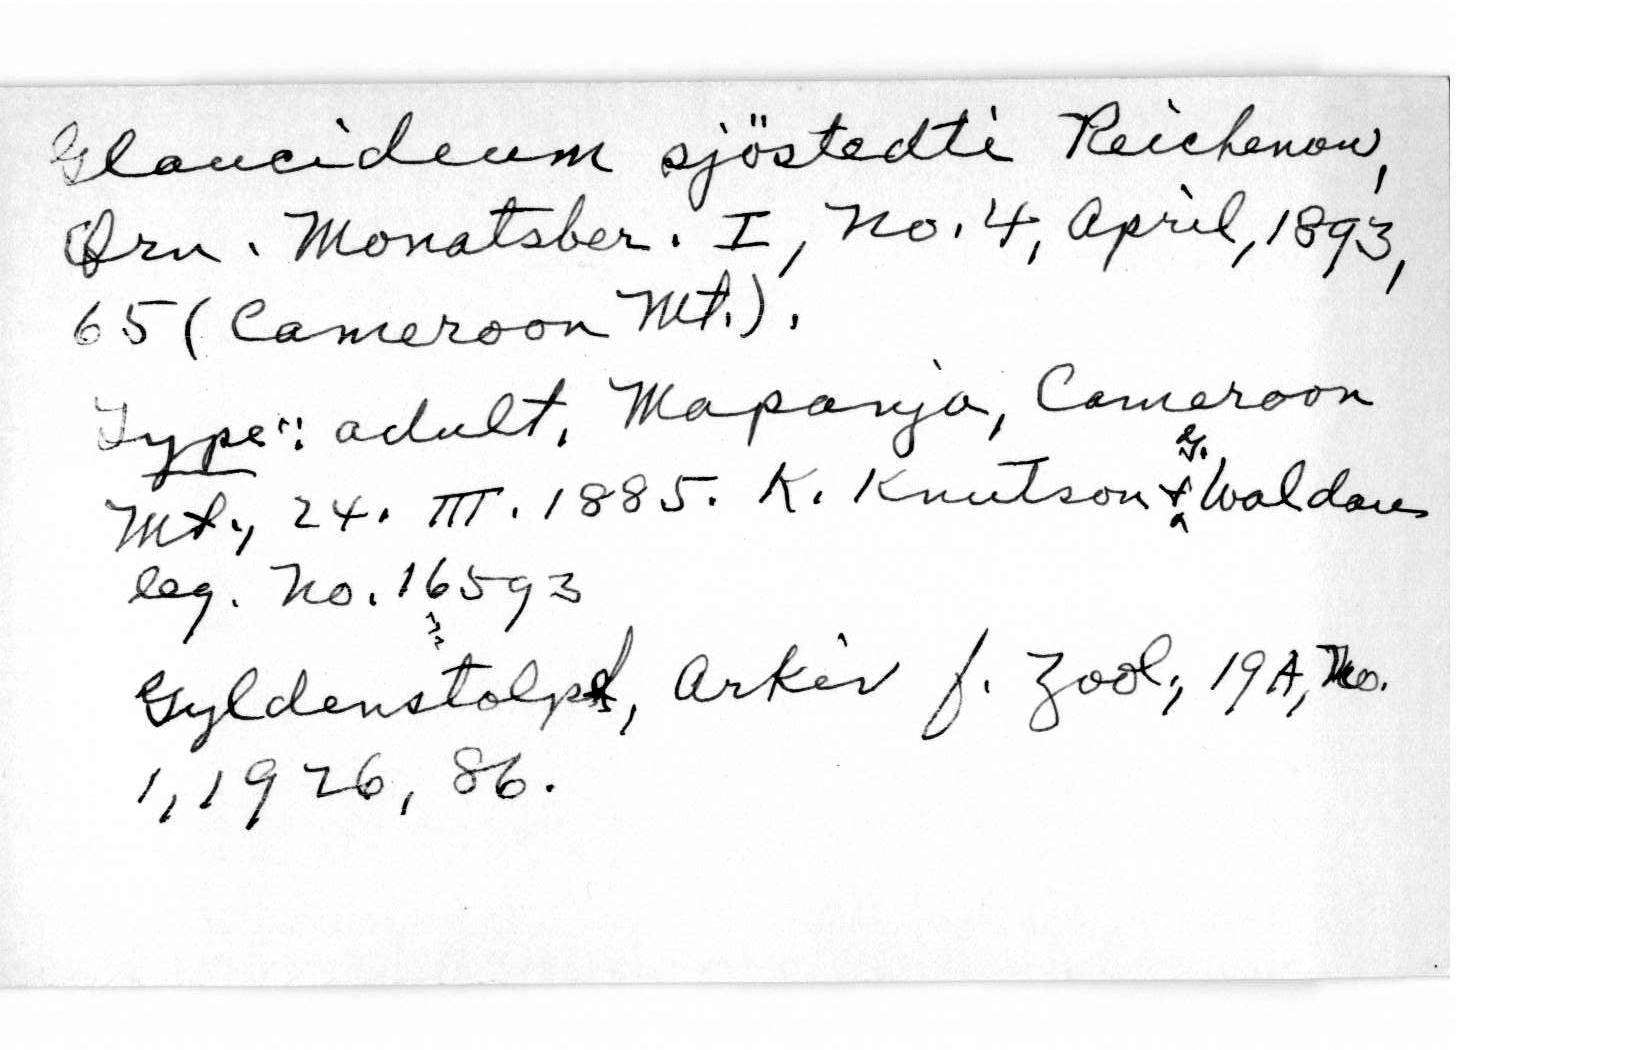 Glaucidium sjöstedti Reichenow,
Orn. Monatsber. I, no. 4, April, 1893,
65 (Cameroon Mt.).
Type: adult, Mapanja, Cameroon
Mt., 24. III. 1885. K. Knutson & G. Waldau
leg. No. 16593
Gyldenstolpe, Arkiv f. Zool., 19A, No.
1, 1926, 86.